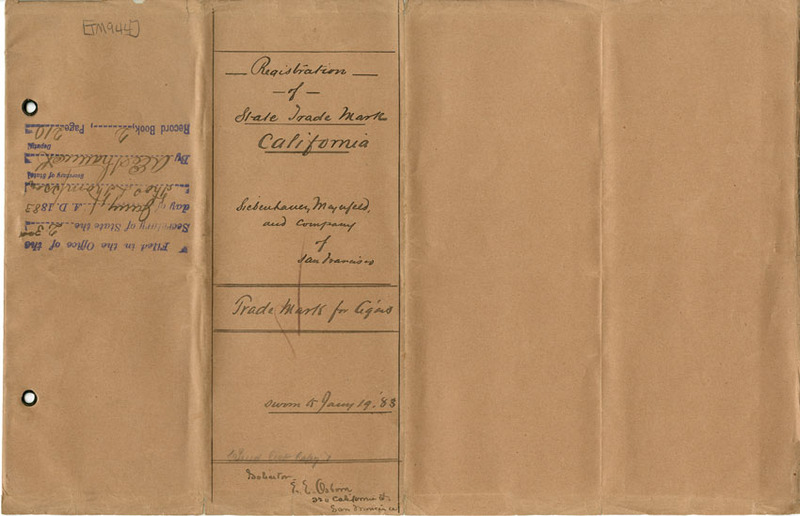 [TM944]
Registration
of
State Trade Mark
California
Siebenhauer, Maynfeld,
and Company
of
San Francisco
Trade Mark for Cigars
Sworn to Jany 19. '83
Solicitor
E. E. Osborn
320 California St.
San Francisco
Filed in the Office of the
Secretary of State the
day of Jany A. D. 1883
Secretary of State
By
Deputy
Record Book 2, Page 210